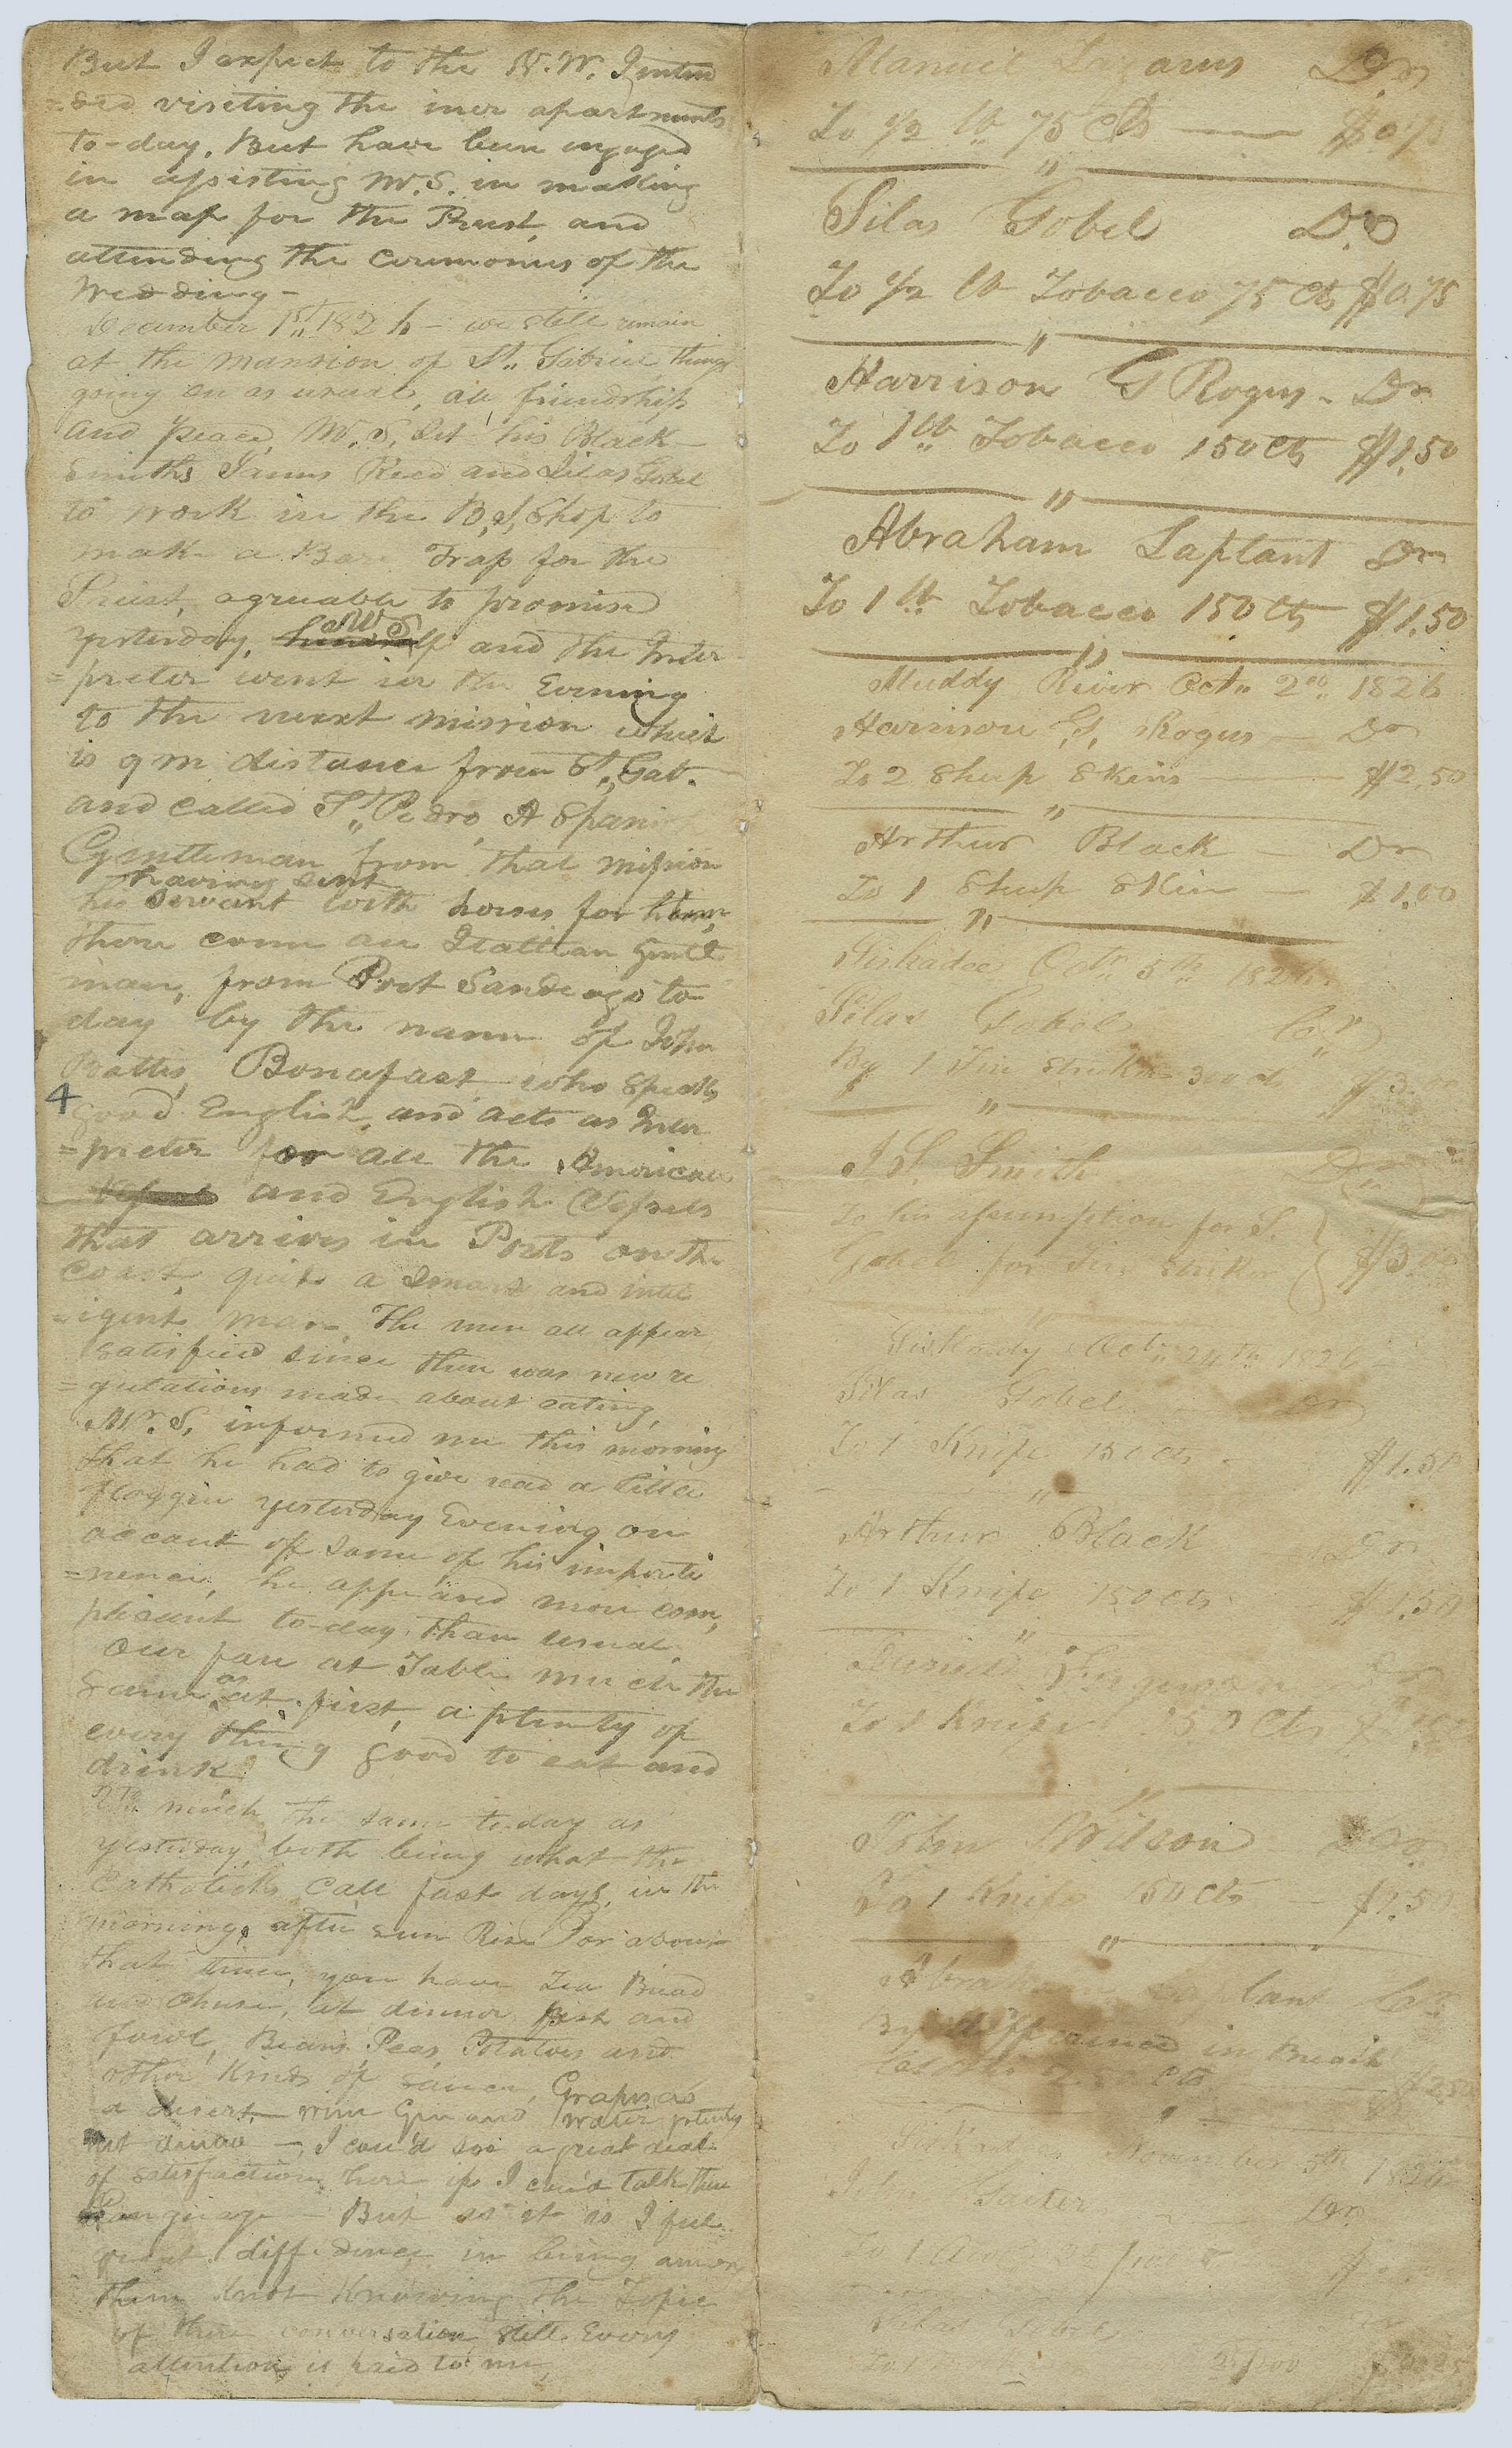 But I expect to the N. W. I inten
=ded visiting the iner apartments
to-day. But have been engaged
in assisting Mr. S. in making
a map for the Priest, and
attending the ceremonies of the
Wedding -
December 1st 1826 - we still remain
at the mansion of St. Gabriel, things
going on as usual, all friendship
and peace, Mr. S. Set his Black
Smiths James Reed and Silas Gobel
to work in the B. S. Shop to
make a Bare Trap for the
Priest, agreeable to promise
yesterday, himself and the Inter
Mr. S
=preter went in the Evening
to the next mission which
is 9 m distance from St. Gab.
and called St. Pedro, A Spanish
Gentleman from that mission
having sent
his servant with horses for them,
there come an Itallian gentle
man, from Port Sandeago to
day by the name of John
Battis Bonafast who speaks
4
good English, and acts as Inter
=preter for all the American
Vessels and English Vessels
that arrives in Ports on the
coast, quite a smart and intel
=igent man. The men all appear
satisfied since there was new re
=gulations made about eating,
Mr. S. informed me this morning
that he had to give read a little
floggin yesterday Evening on
account of some of his imperti
=nence, he appeared more com,
plisant to-day than usual.
Our fare at Table much the
Same as at first, a plenty of
every thing good to eat and
drink.
2nd. much the same to-day as
yesterday, both being what the
Catholicks call fast days, in the
morning, after sun Rise Or about
that time, you have Tea Bread
and Chease, at dinner fish and
fowl, Beans, Peas, Potatoes and
other Kinds of sauce, Grapes as
a desert, wine Gin and Water plenty
at dinner - I cou'd see a great deal
of satisfaction here if I cou'd talk there
Language - But as it is I feel
great diffedence in being among
them Knot Knowing the Topic
of there conversation, still Every
attention is paid to me,
Manuil Lazarus Dr
To 1/2 lb 75 cts $0.75
Silas Gobel Dr
To 1/2 lb Tobacco 75 cts $0.75
Harrison G Rogers - Dr
To 1 lb Tobacco 150 cts $1.50
Abraham Laplant Dr
To 1 lb Tobacco 150 cts $1.50
Muddy River Oct. 2nd. 1826
Harrison G. Rogers - Dr
To 2 Sheep Skins $2.50
Arthur Black - Dr
To 1 Sheep Skin - $1.00
Siskadee Octr. 5th 1826.
Silas Gobel Cr.
By 1 Fire striker 300 cts $3.00
J. S. Smith Dr.
To his assumption for S.
Gobel for Fire striker $3.00
Siskady Oct. 24th 1826
Silas Gobel Dr
To 1 Knife 150 cts - $1.50
Arthur Black Dr
To 1 Knife 150 cts $1.50
Daniel Ferguson Dr
To 1 Knife 150 cts
John Wilson Dr
To 1 Knife 150 cts - $1.50
Abraham Laplant Cr
By difference in
250 cts $2.50
Siskadee November 5th 1826
John Gaiter Dr
To 1
Silas Gobel Dr
To 1